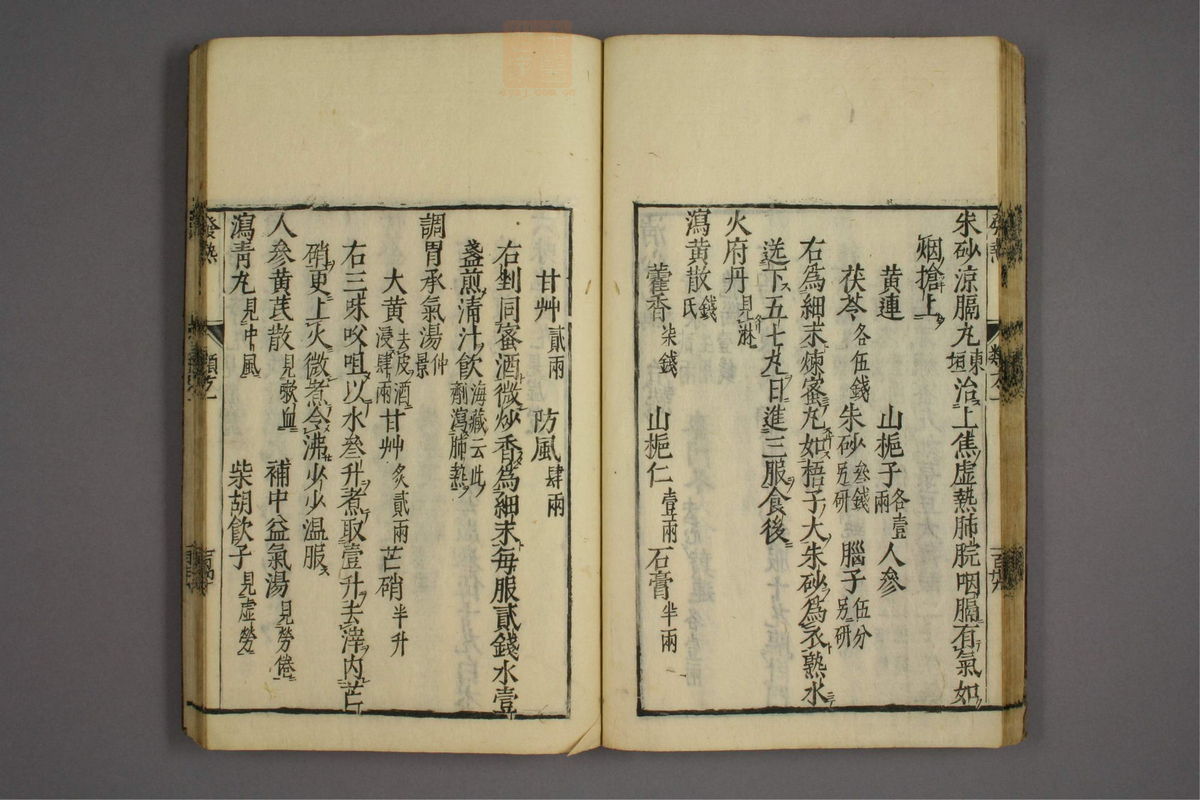 朱砂涼膈丸東垣治上焦虛熱肺脘咽膈有氣如
烟搶上
黄連　山梔子各壹兩　人參
茯苓各伍錢　朱砂叁錢另研　腦子伍分另研
右爲細末煉蜜丸如梧子大朱砂爲衣熟水
送下五七丸日進三服食後
火府丹見淋
瀉黄散錢氏
藿香柒錢　山梔仁壹兩　石膏半兩
甘艸貳兩　防風肆兩
右剉同蜜酒微炒香爲細末每服貳錢水壹
盞煎清汁飲海藏云此劑瀉肺熱
調胃承氣湯仲景
大黄去皮酒浸肆兩　甘艸炙貳兩　芒硝半升
右三味㕮咀以水叁升煮取壹升去滓内芒
硝更上火微煮令沸少少温服
人參黄芪散見嗽血　補中益氣湯見勞倦
瀉青丸見中風　柴胡飲子見虛勞
發熱